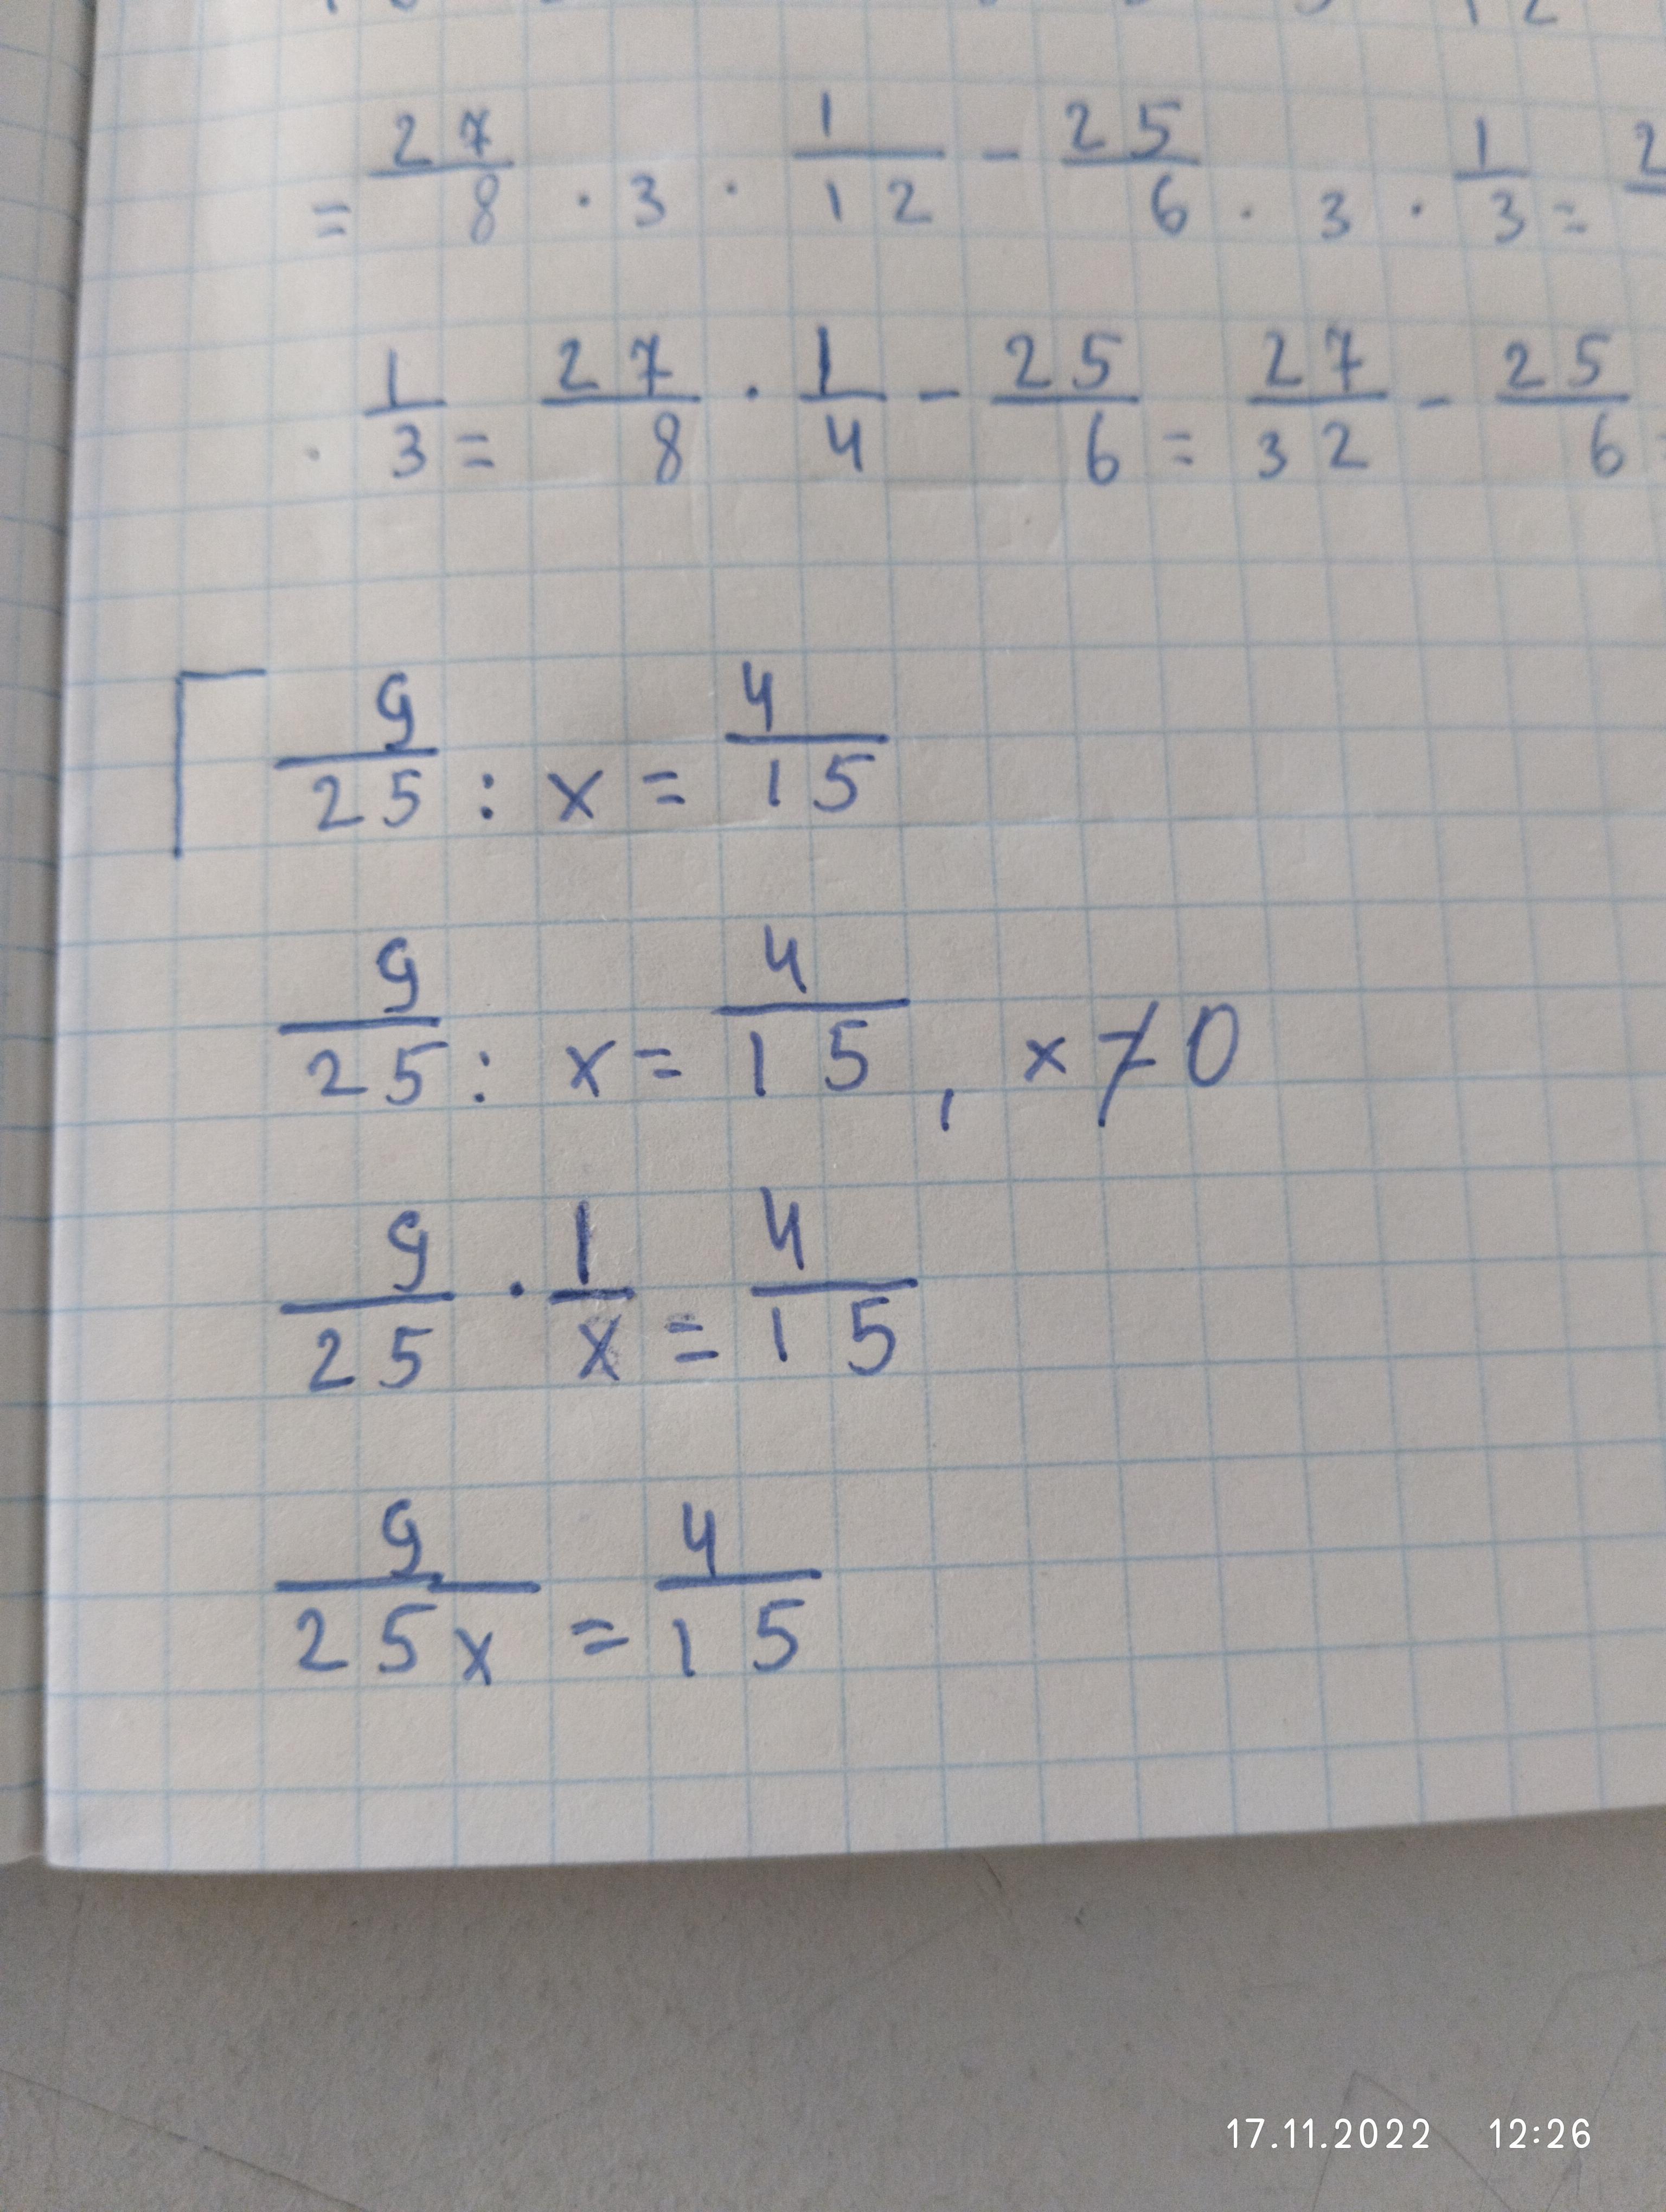 = 27/8 · 3 · 1/12 - 25/6 · 3 · 1/3 =
· 1/3 = 27/8 · 1/4 - 25/6 = 27/32 - 25/6
9/25 : x = 4/15
9/25 : x = 4/15 , x ≠ 0
9/25 · 1/x = 4/15
9/25x = 4/15
17.11.2022 12:26